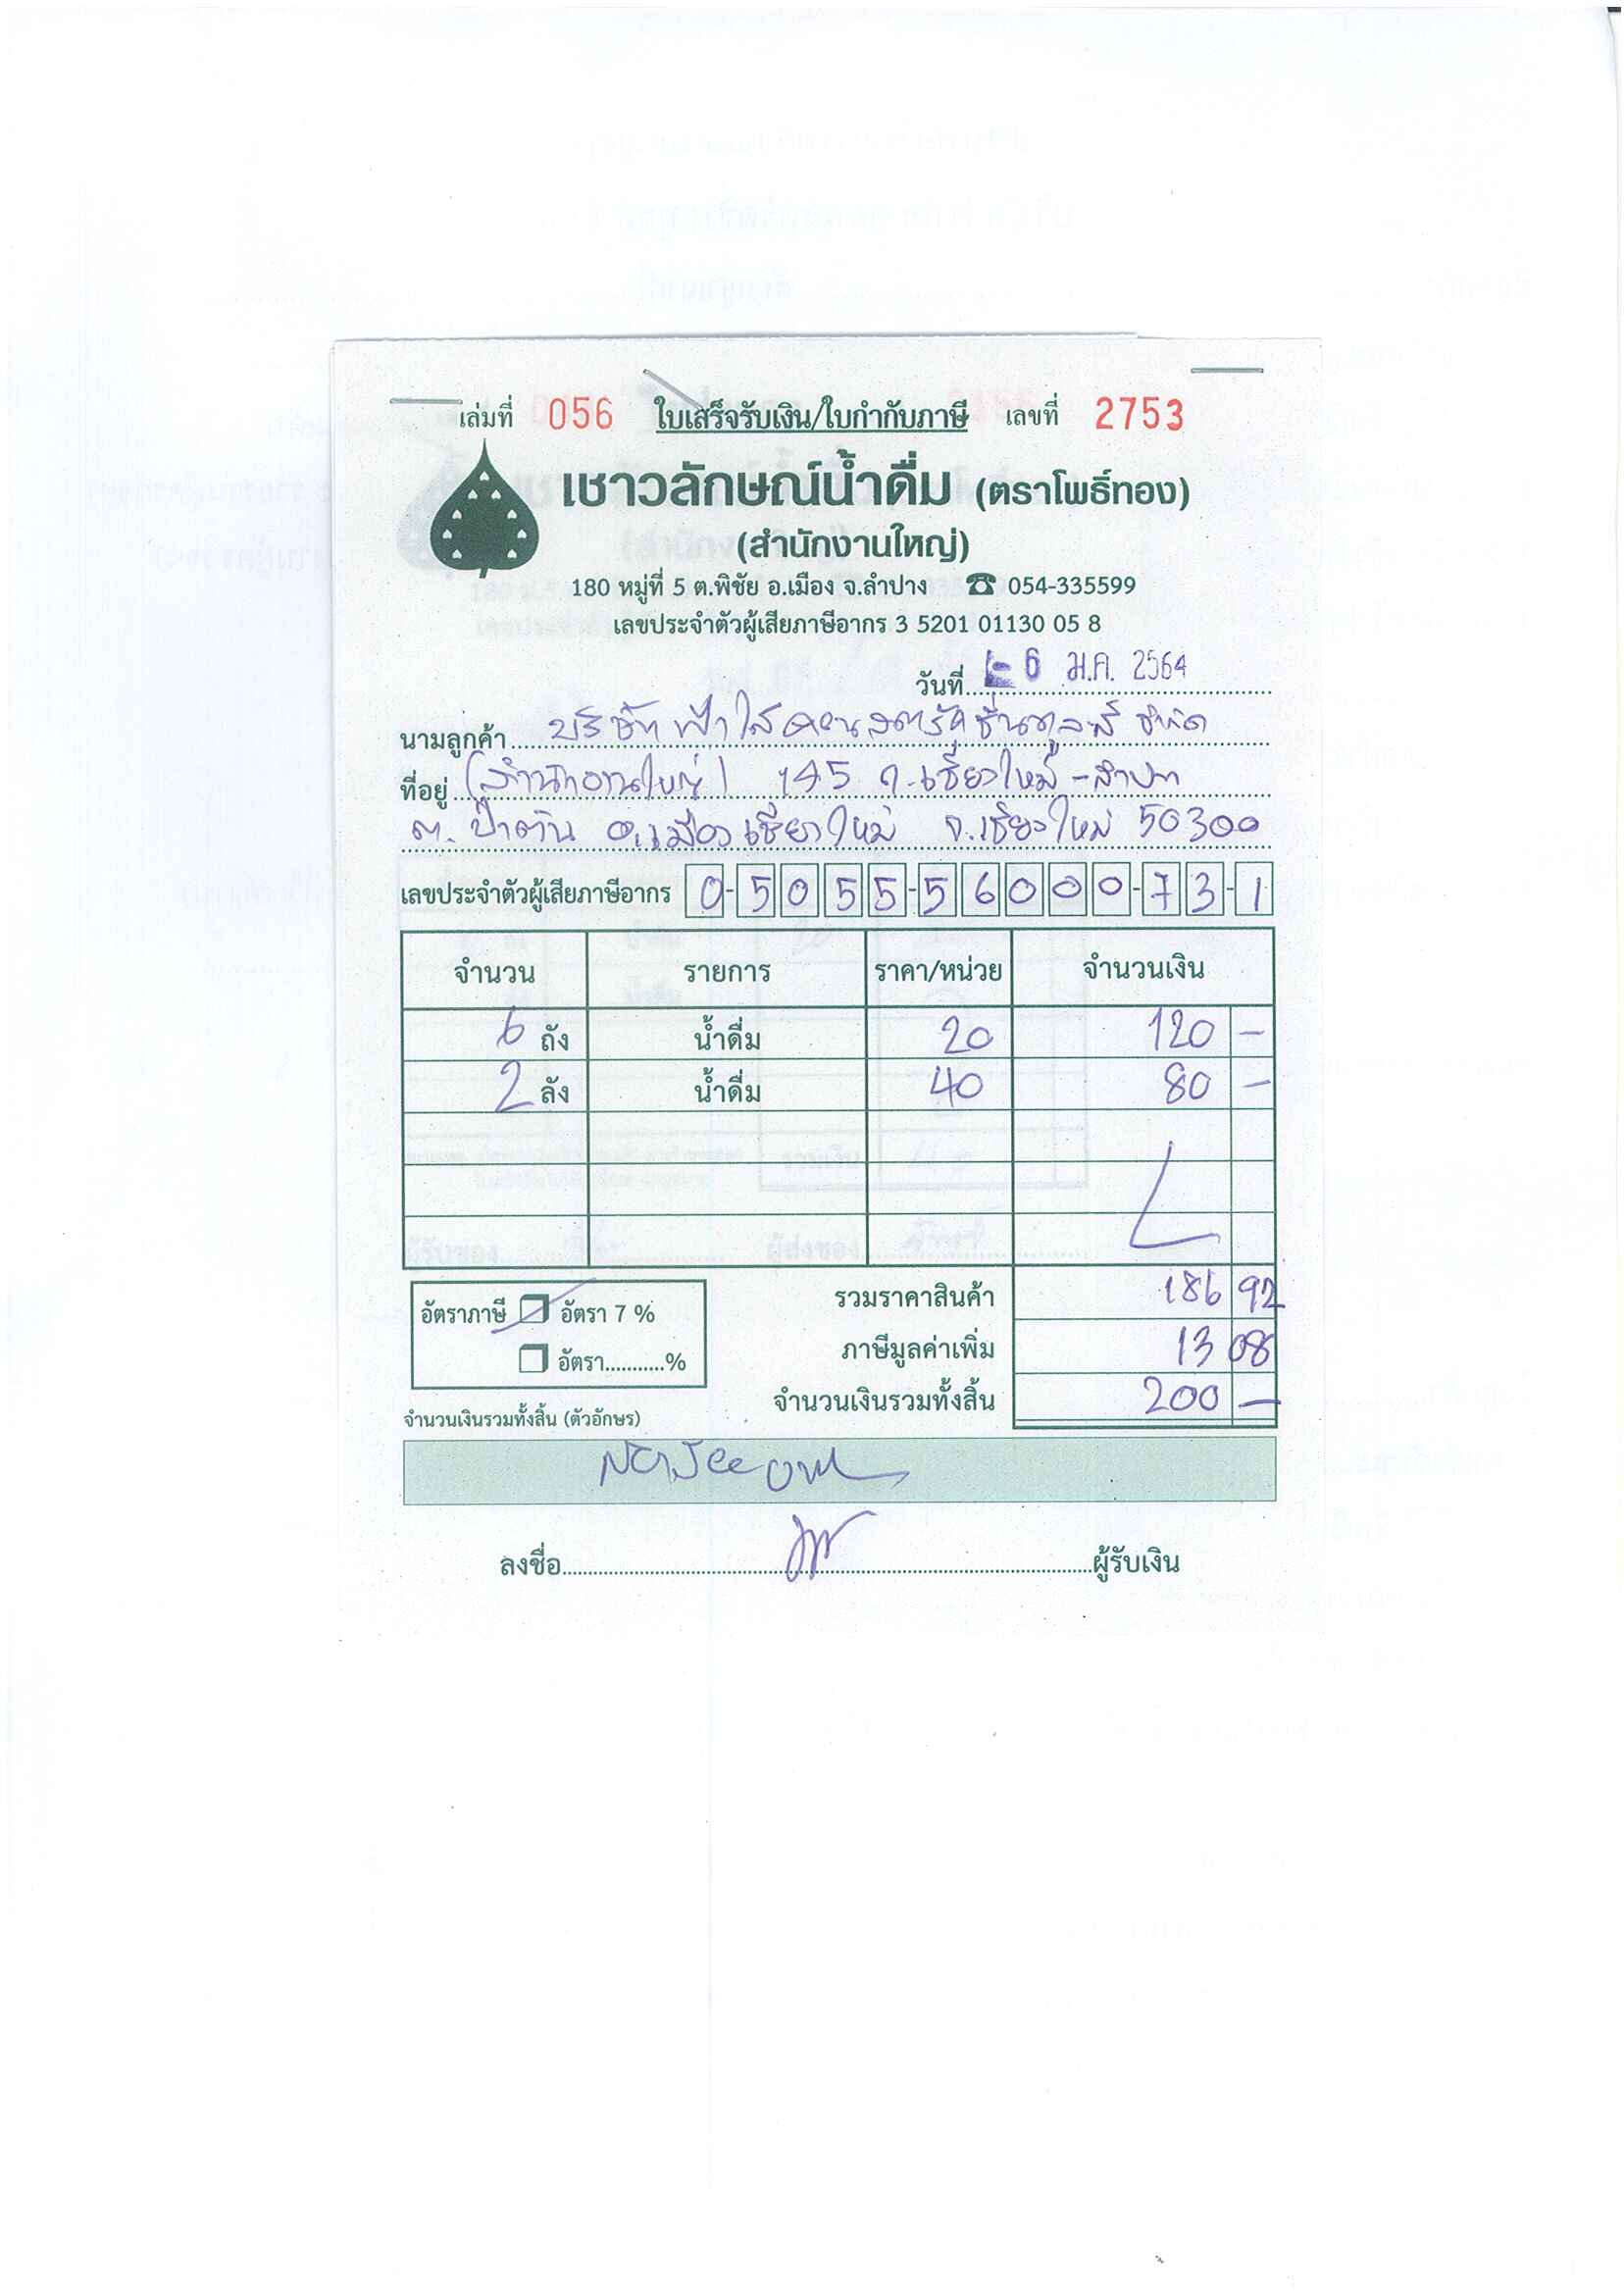 เล่มที่ 056 ใบเสร็จรับเงิน/ใบกำกับภาษี เลขที่ 2753
เชาวลักษณ์น้ำดื่ม (ตราโพธิ์ทอง)
(สำนักงานใหญ่)
180 หมู่ที่ 5 ต.พิชัย อ.เมือง จ.ลำปาง ☎ 054-335599
เลขประจำตัวผู้เสียภาษีอากร 3 5201 01130 05 8
วันที่ - 6 ม.ค. 2564
นามลูกค้า บริษัท ฟ้าใสคอนสตรัคชั่น จำกัด
ที่อยู่ (สำนักงานใหญ่) 145 ถ.เชียงใหม่ - ลำปาง
ต. ป่าตัน อ.เมืองเชียงใหม่ จ.เชียงใหม่ 50300
เลขประจำตัวผู้เสียภาษีอากร 0-5055-56000-73-1
จำนวน รายการ ราคา/หน่วย จำนวนเงิน
6 ถัง น้ำดื่ม 20 120 -
2 ลัง น้ำดื่ม 40 80 -
รวมราคาสินค้า 186 92
อัตราภาษี อัตรา 7 %
ภาษีมูลค่าเพิ่ม 13 08
อัตรา...........%
จำนวนเงินรวมทั้งสิ้น 200 -
จำนวนเงินรวมทั้งสิ้น (ตัวอักษร)
ลงชื่อ ผู้รับเงิน